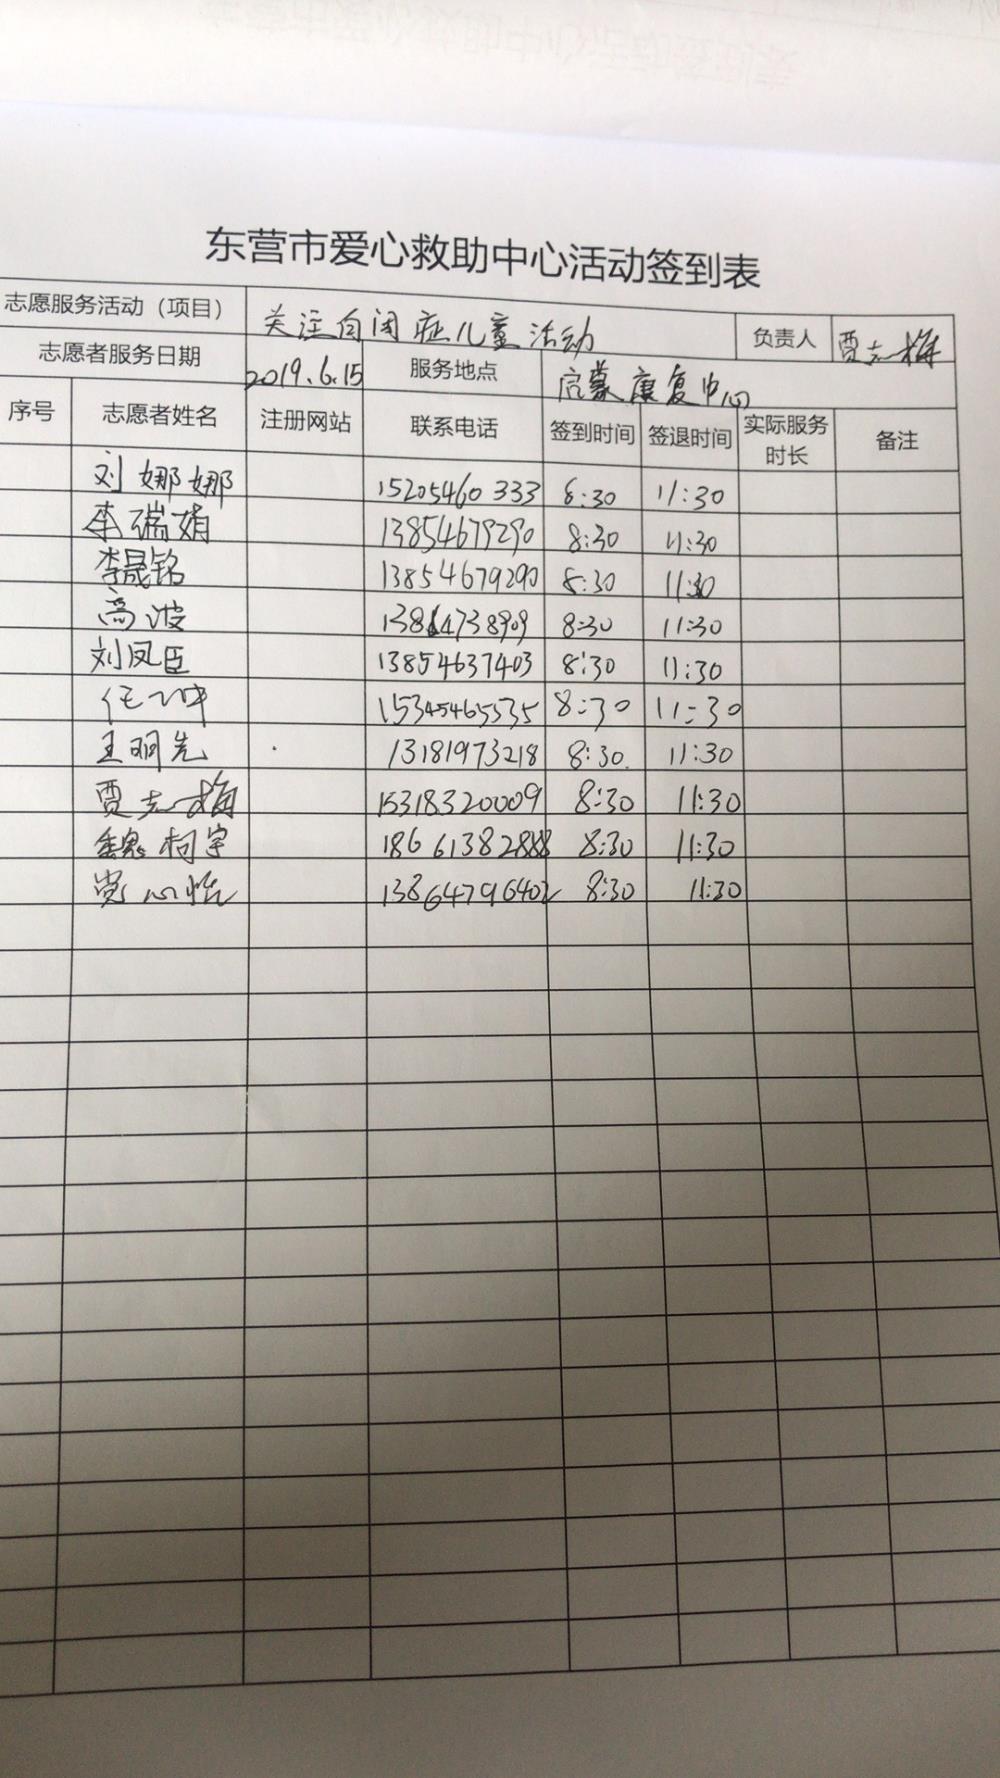 东营市爱心救助中心活动签到表
志愿服务活动（项目） 关注自闭症儿童活动 负责人 贾志梅
志愿者服务日期 2019.6.15 服务地点 启蒙康复中心
序号 志愿者姓名 注册网站 联系电话 签到时间 签退时间 实际服务时长 备注
刘娜娜 15205460333 8:30 11:30
李瑞娟 13854679290 8:30 11:30
李晟铭 13854679290 8:30 11:30
高波 13864738909 8:30 11:30
刘凤臣 13854637403 8:30 11:30
任冲 15345465535 8:30 11:30
王明先 13181973218 8:30. 11:30
贾志梅 15318320009 8:30 11:30
魏柯宇 18661382888 8:30 11:30
心怡 13864796402 8:30 11:30